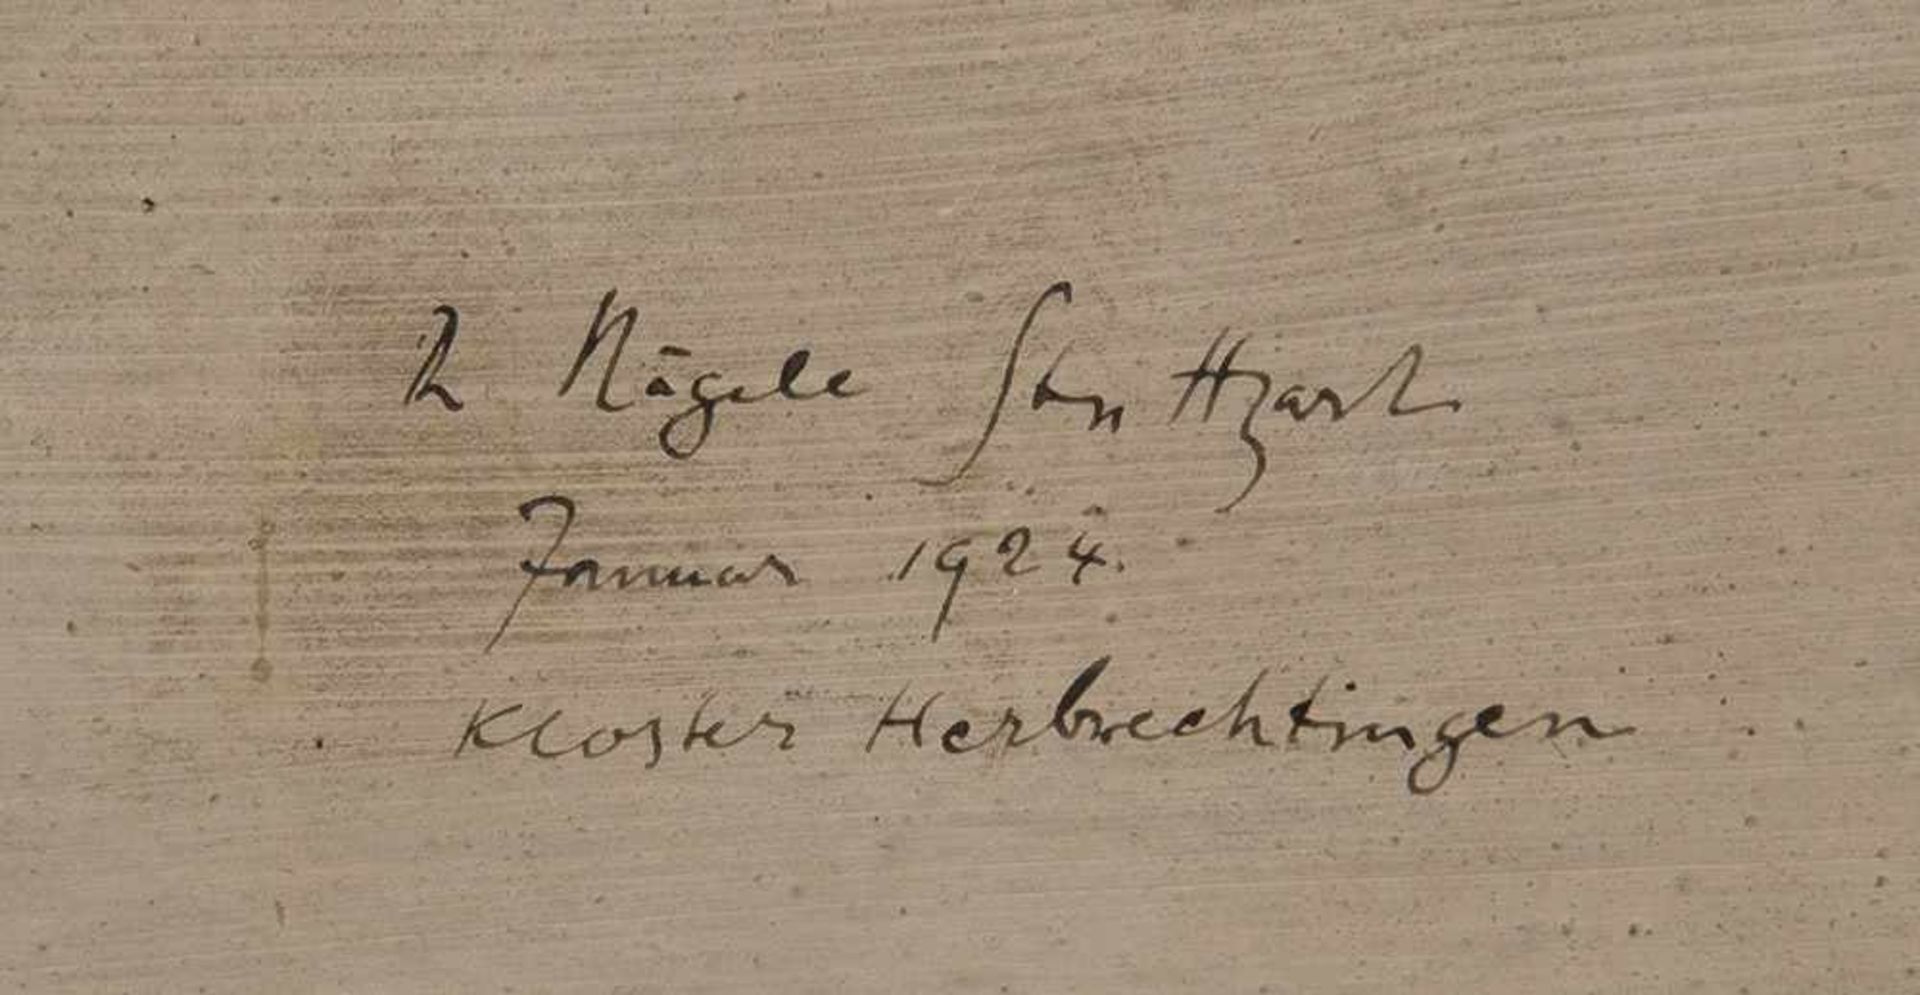 R Nägele Stuttgart
Januar 1924.
Kloster Herbrechtingen